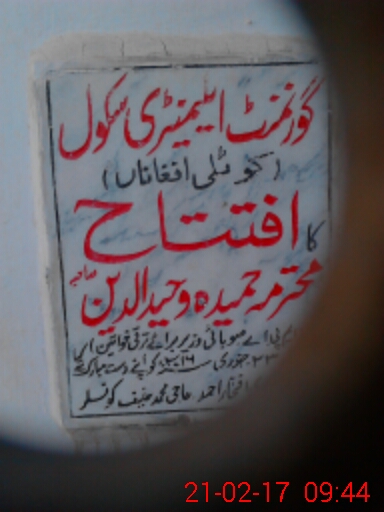 گورنمنٹ ایلیمنٹری سکول
(کوٹلی افغاناں)
کا افتتاح
محترمہ حمیدہ وحیدالدین صاحبہ
پی اے صوبائی وزیر برائے ترقی خواتین
جنوری ۲۰۱۶ کو اپنے دست مبارک
افتخار احمد حاجی محمد حنیف کونسلر
21-02-17 09:44